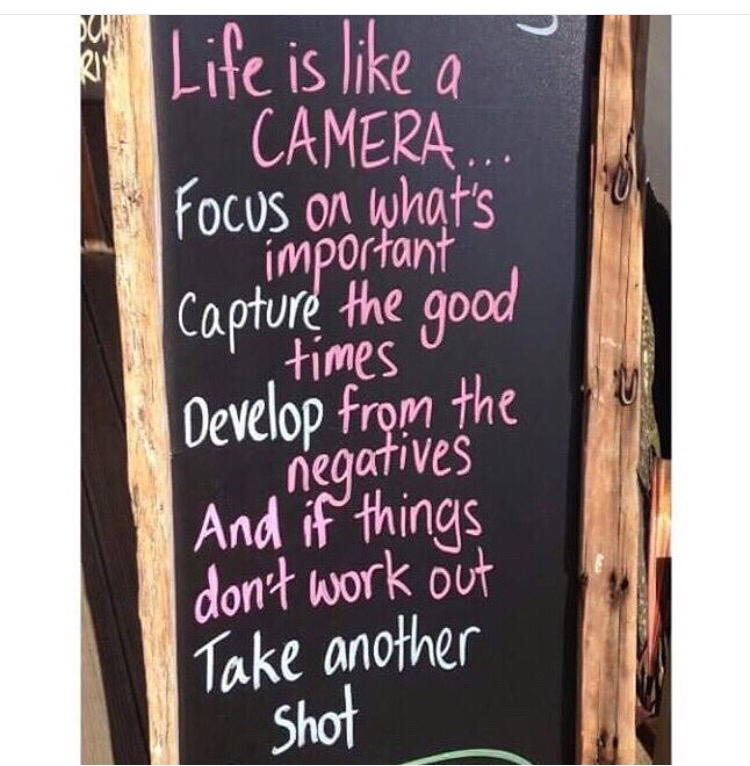 Life is like a
CAMERA...
Focus on what's
important
Capture the good
times
Develop from the
negatives
And if things
don't work out
Take another
Shot